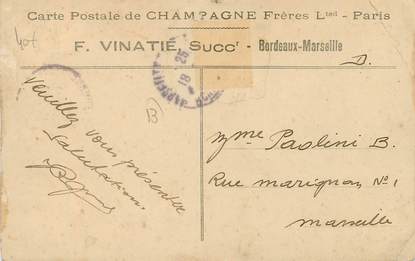 Carte Postale de CHAMPAGNE Frères Lted - Paris
40f
F. VINATIÉ, Succr - Bordeaux-Marseille
D.
MARSEILLE
18 25
B
Veuillez vous présenter
salutation.
Mme Paolini B.
Rue marignan No 1
Marseille